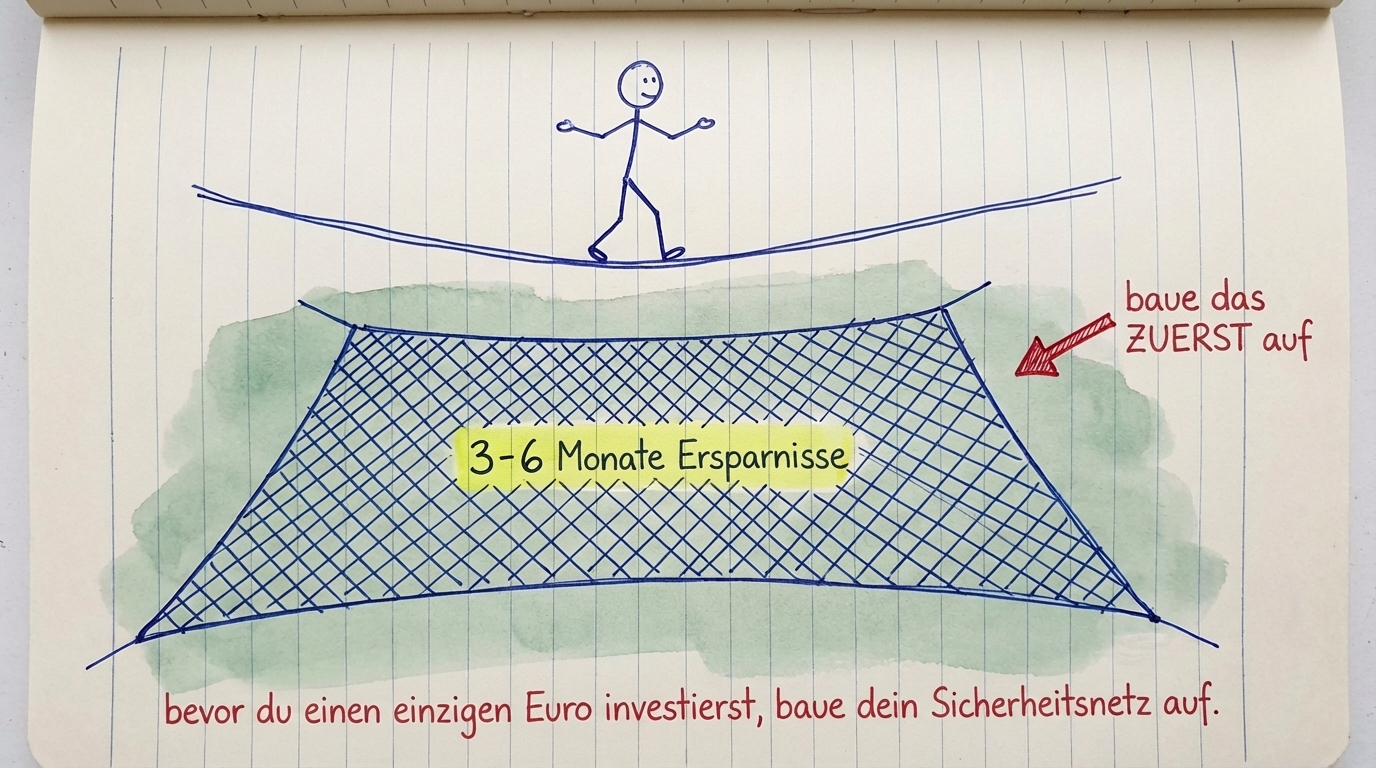 baue das
ZUERST auf
3-6 Monate Ersparnisse
bevor du einen einzigen Euro investierst, baue dein Sicherheitsnetz auf.